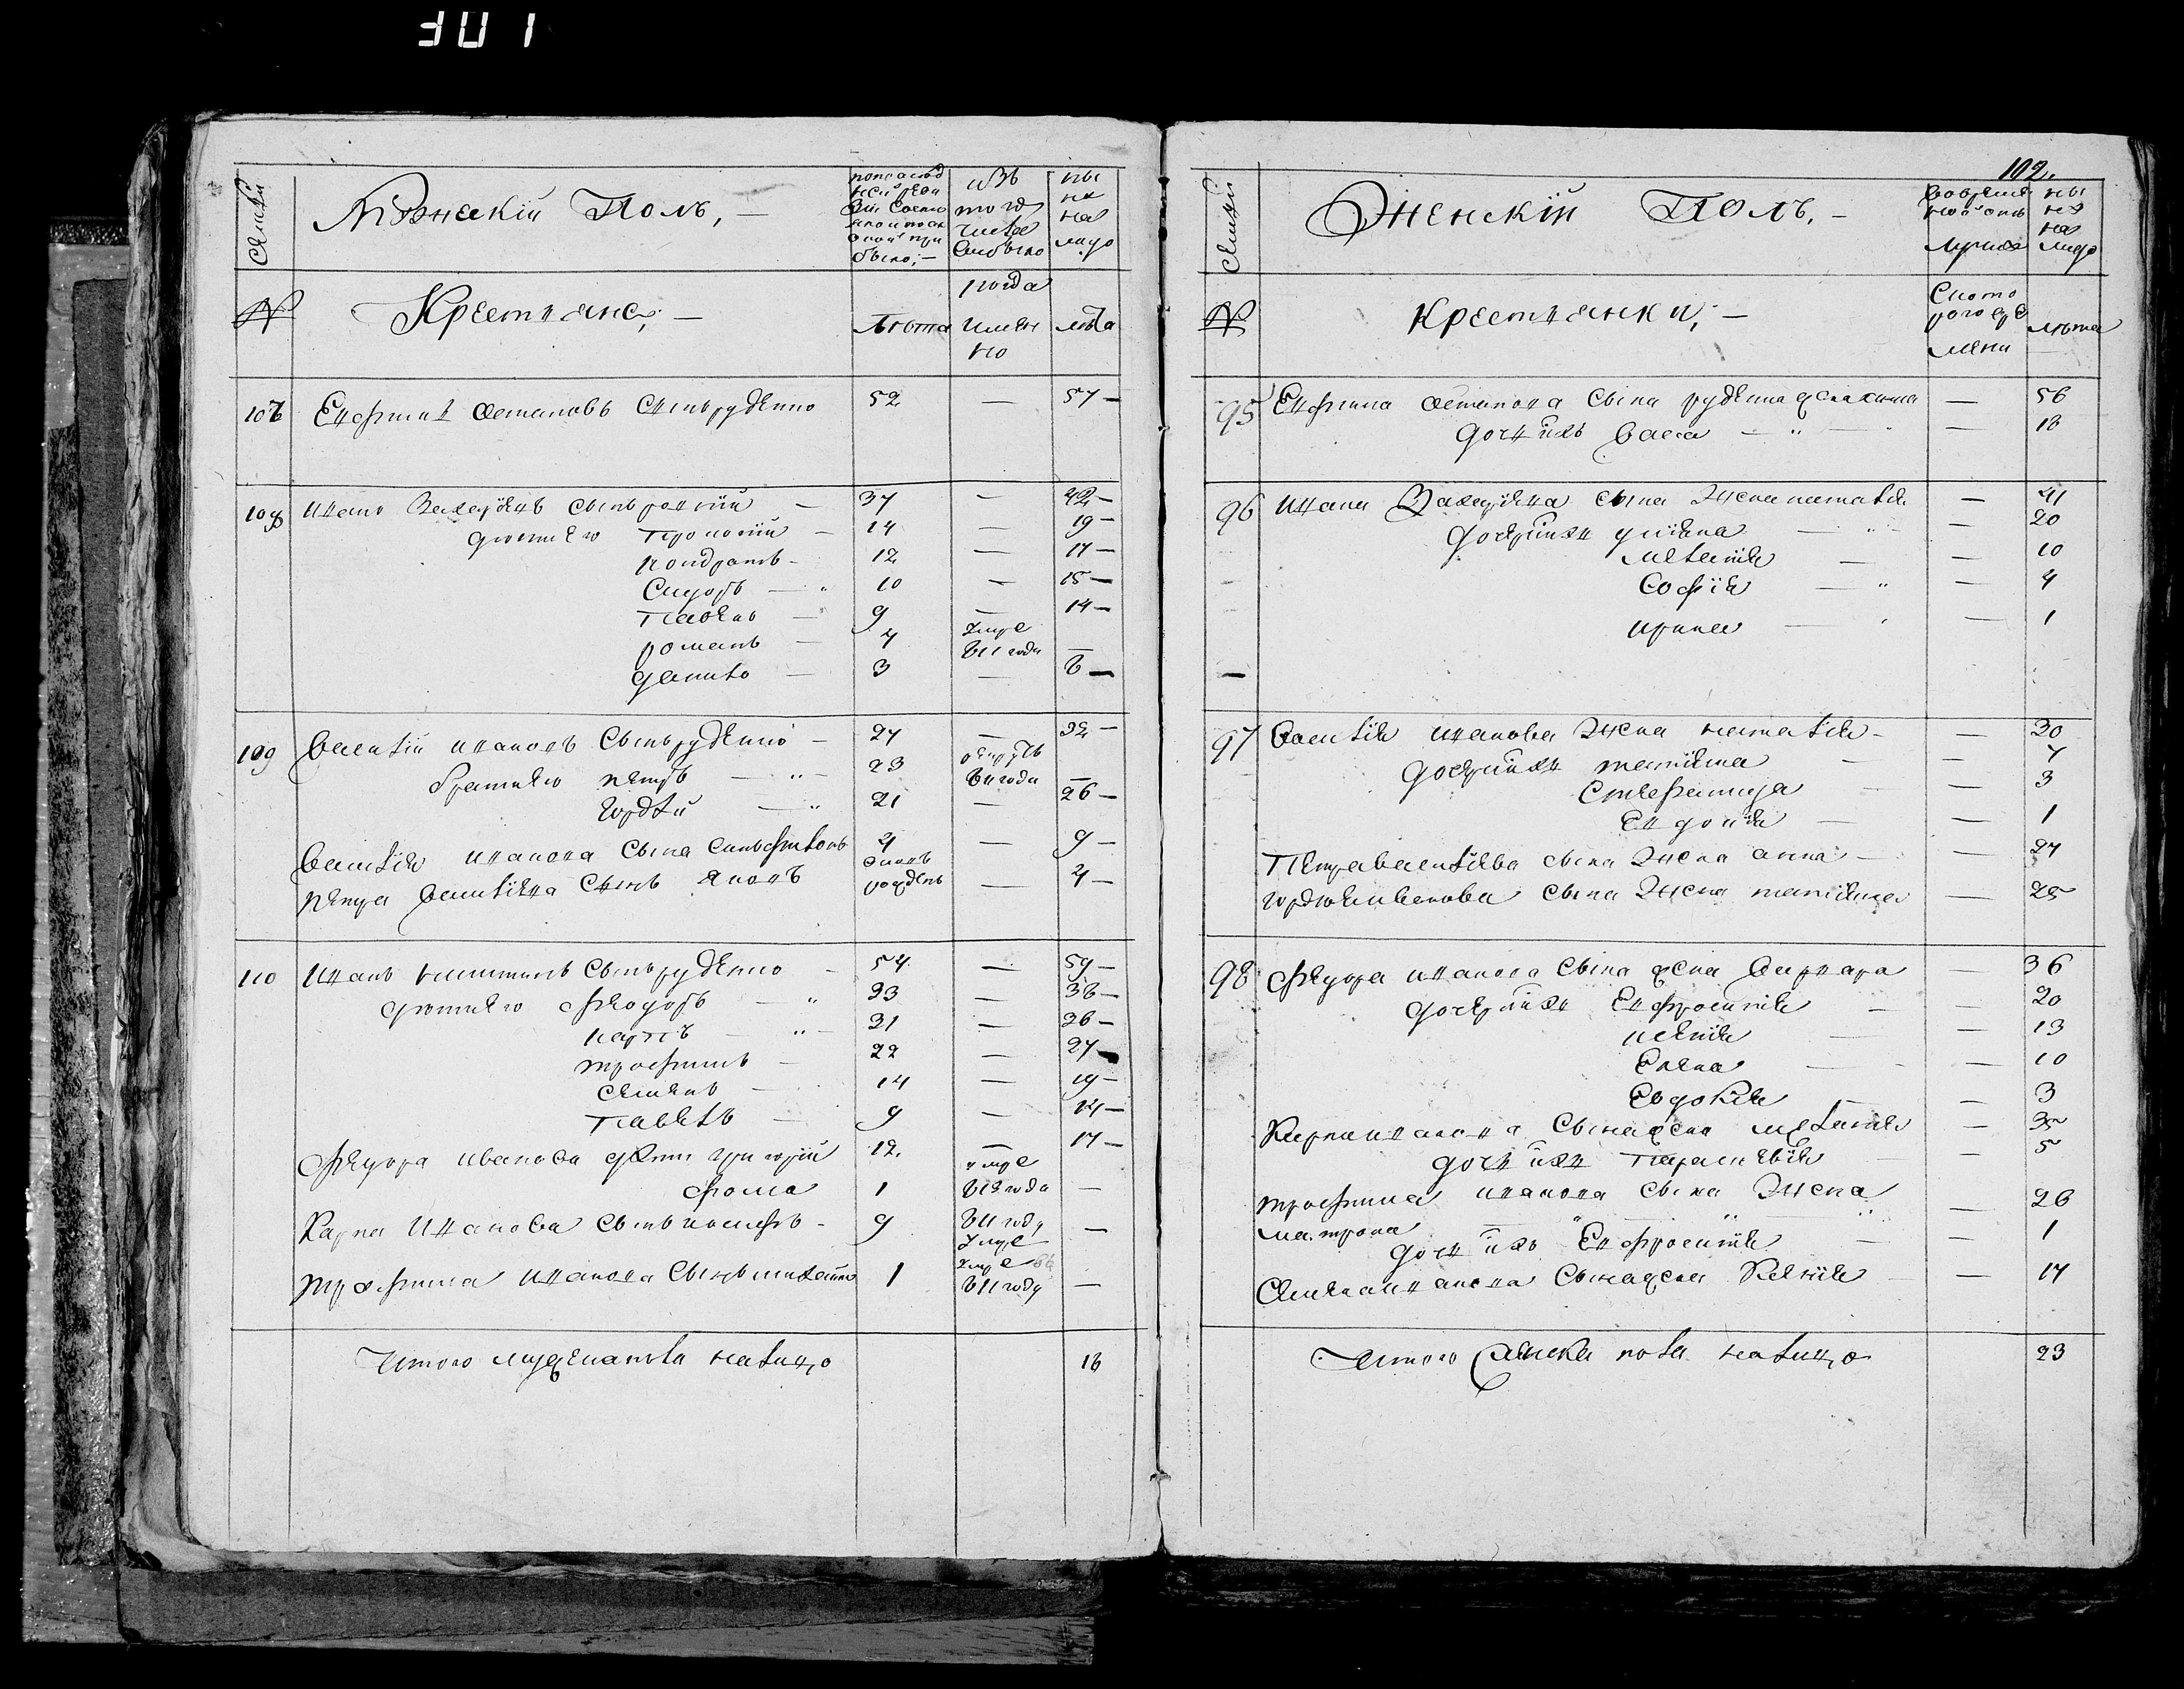 301
Семьи
Мужескій Полъ, —
по последней ревизіи состояло и после оной прибыло; —
изъ того числа выбыло
ныне на лицо
№
Крестьяне; —
Лѣта
когда именно
лѣта
107 Евфимъ Остаповъ Сынъ руденко 52 — 57 —
108 Иванъ Захаріевъ Сынъ — 37 — 42 —
дѣти его Прокопій — 14 — 19 —
кондратъ — 12 — 17 —
Сидоръ — 10 — 15 —
Павелъ — 9 — 14 —
романъ — 4 умре в 11 годи —
данило — 3 — 8 —
109 Василій ивановъ Сынъ руденко — 27 — 32 —
братъ его петръ — 23 рекрутъ в 11 годи —
Гордѣй — 21 — 26 —
Василія иванова Сына Сынъ 4 — 9 —
петра Василіева Сынъ яковъ рожденъ — 4 —
110 Иванъ никитинъ Сынъ руденко — 54 — 59 —
дѣти его Феодоръ — 33 — 38 —
карпъ — 31 — 36 —
трофимъ — 22 — 27 —
Семенъ — 14 — 19 —
Павелъ — 9 — 14 —
Федора иванова дѣти григорій 12 — 17 —
фома 1 умре в 12 года —
Карпа Иванова Сынъ иосифъ — 9 в 11 году умре —
трофима иванова Сынъ михайло 1 умре в 11 году —
Итого мужеска пола налицо 18
102.
Семьи
Женскій Полъ, —
во временной отлучке
ныне на лицо
№
Крестьянки; —
Съ которого времени
лѣта
95 Евфима остапова Сына руденка жена — 56
дочь ихъ Васса — 18
96 Ивана Захаріева Сына Жена наталія — 41
дочери ихъ уліяна — 20
меланія — 10
Софія — 4
ирина — 1
97 Василія иванова Жена наталія — 30
дочери ихъ татіяна — 7
Стефанида — 3
Евдокія — 1
Петра Василіева Сына Жена анна — 27
гордѣя иванова Сына Жена татіяна — 25
98 Федора иванова Сына жена Варвара — 36
дочери ихъ Евфросинія — 20
ксенія — 13
Елена — 10
Евдокія — 3
Карпа иванова Сына жена меланія — 35
дочь ихъ Параскевія — 5
трофима иванова Сына Жена матрона — 26
дочь ихъ Евфросинія — 1
Семена иванова Сына жена Ксенія — 17
Итого женска пола налицо 23